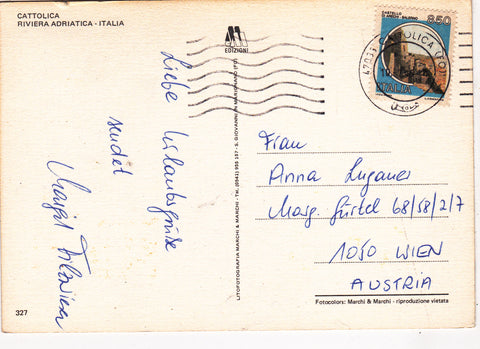 CATTOLICA
RIVIERA ADRIATICA - ITALIA
EDIZIONI
CASTELLO
DI ARECHI - SALERNO
850
ITALIA
47033 CATTOLICA (FO)
Liebe Urlaubsgrüße
sendet
Margit
LITOFOTOGRAFIA MARCHI & MARCHI - Tel. (0541) 955 107 - S. GIOVANNI IN MARIGNANO (FO)
Frau
Anna Luganer
Marg. Gürtel 68/58/2/7
1050 WIEN
AUSTRIA
327
Fotocolors: Marchi & Marchi - riproduzione vietata